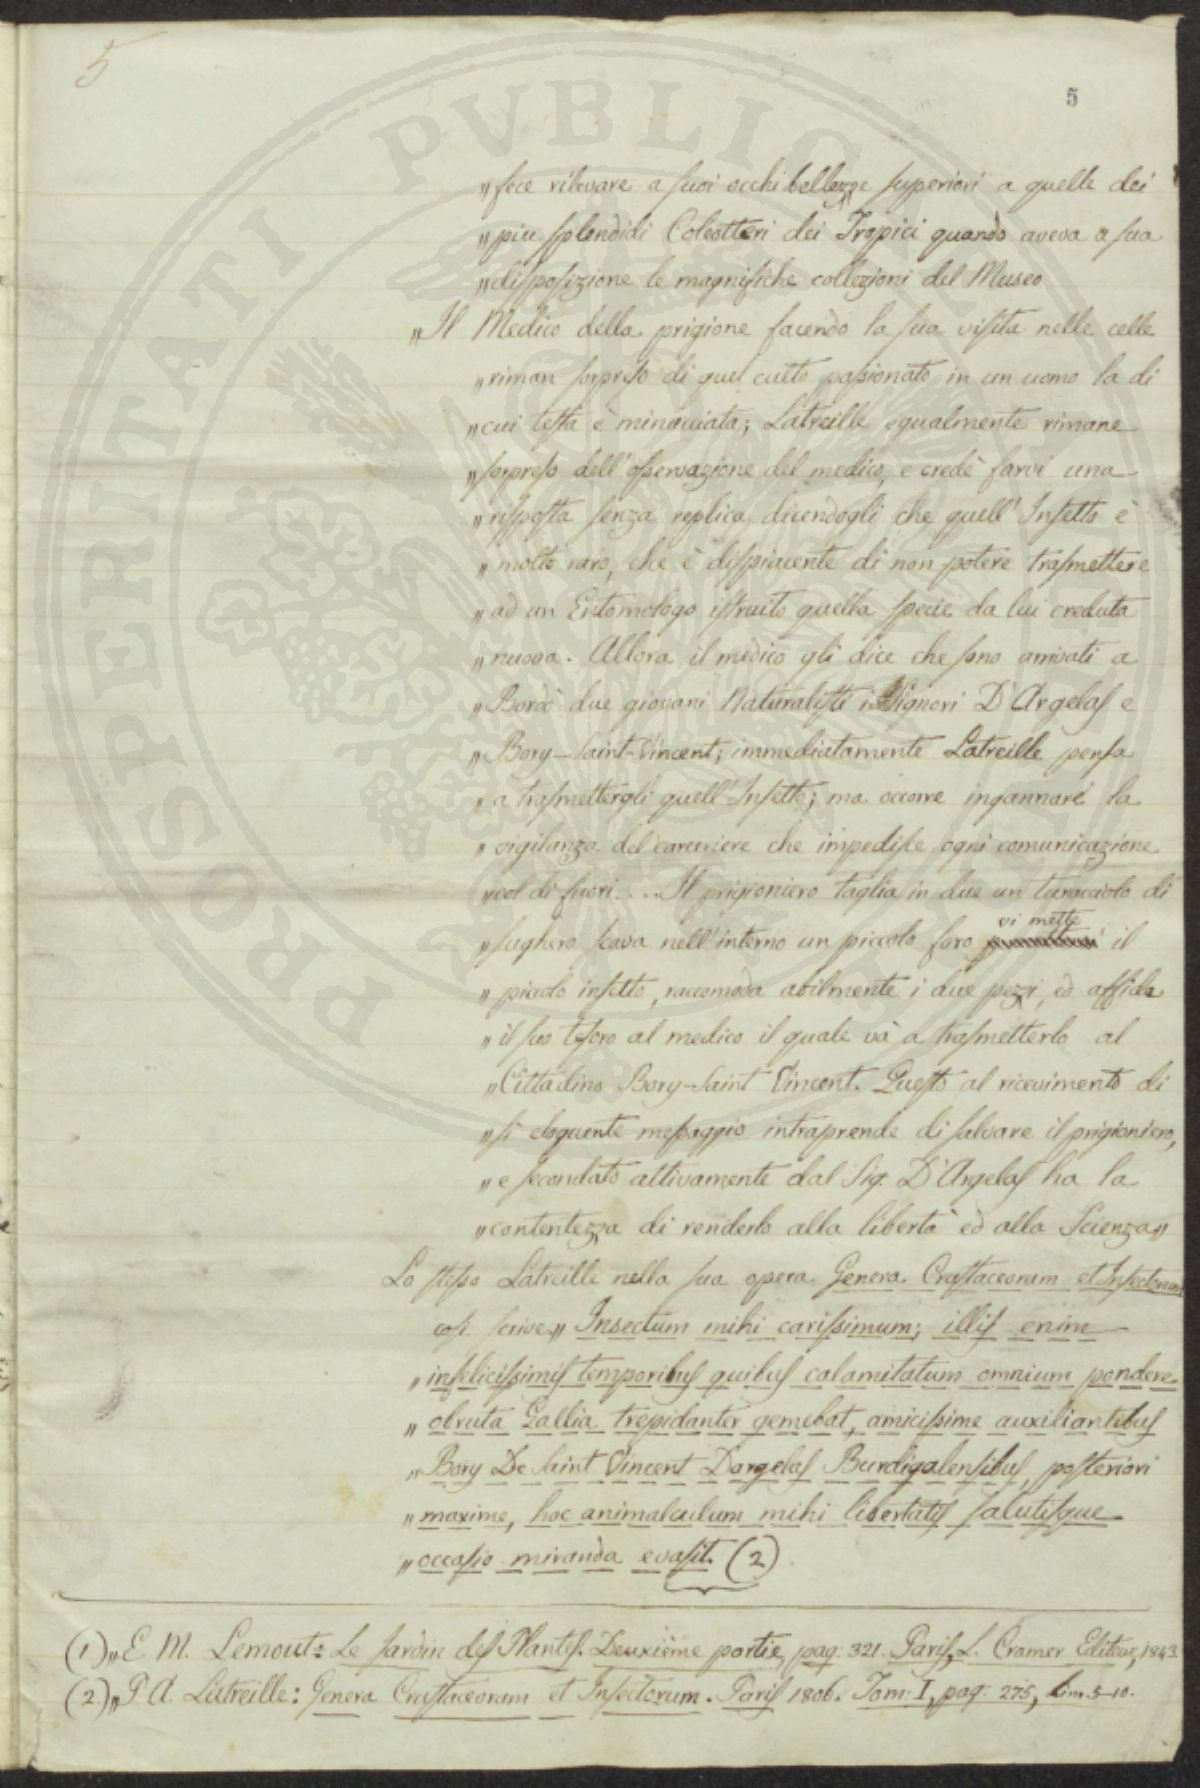 5
5
„fece rilevare a suoi occhi bellezze superiori a quelle dei
„più splendidi Coleotteri dei Tropici quando aveva a sua
„disposizione le magnifiche collezioni del Museo
„Il Medico della prigione facendo la sua visita nelle celle
„riman sorpreso di quel culto passionato in un uomo la di
„cui testa è minacciata; Latreille egualmente rimane
„sorpreso dell'osservazione del medico, e credè farvi una
„risposta senza replica dicendogli che quell'Insetto è
„molto raro, che è dispiacente di non potere trasmettere
„ad un Entomologo istruito quella specie da lui creduta
„nuova. Allora il medico gli dice che sono arrivati a
„Bordò due giovani Naturalisti i Signori D'Argelas e
„Bory-Saint-Vincent; immediatamente Latreille pensa
„a trasmettergli quell'Insetto; ma occorre ingannare la
„vigilanza del carceriere che impedisce ogni comunicazione
„col di fuori.... Il prigioniero taglia in due un turacciolo di
„sughero scava nell'interno un piccolo foro vi mette il
„piccolo insetto, raccomoda abilmente i due pezzi, ed affida
„il suo tesoro al medico il quale và a trasmetterlo al
„Cittadino Bory-Saint Vincent. Questo al ricevimento di
„si eloquente messaggio intraprende di salvare il prigioniero,
„e secondato attivamente dal Sig. D'Argelas ha la
„contentezza di renderlo alla libertà ed alla Scienza„
Lo stesso Latreille nella sua opera Genera Crustaceorum et Insectorum
così scrive„ Insectum mihi carissimum; illis enim
„infelicissimis temporibus quibus calamitatum omnium pondere
„obruta Gallia trepidanter gemebat, amicissime auxiliantibus
„Bory De Saint Vincent Dargelas Burdigalensibus, posteriori
„maxime, hoc animalculum mihi libertatis salutisque
„occasio miranda evasit. (2)
(1)„E M. Lemout: Le Jardin des Plantes. Deuxième partie, pag: 321. Paris, L. Cramer Editeur, 1843.
(2)„P. A. Latreille: Genera Crustaceorum et Insectorum. Paris 1806. Tom: I, pag: 275, lin. 5-10.
PROSPERITATI PVBLICAE